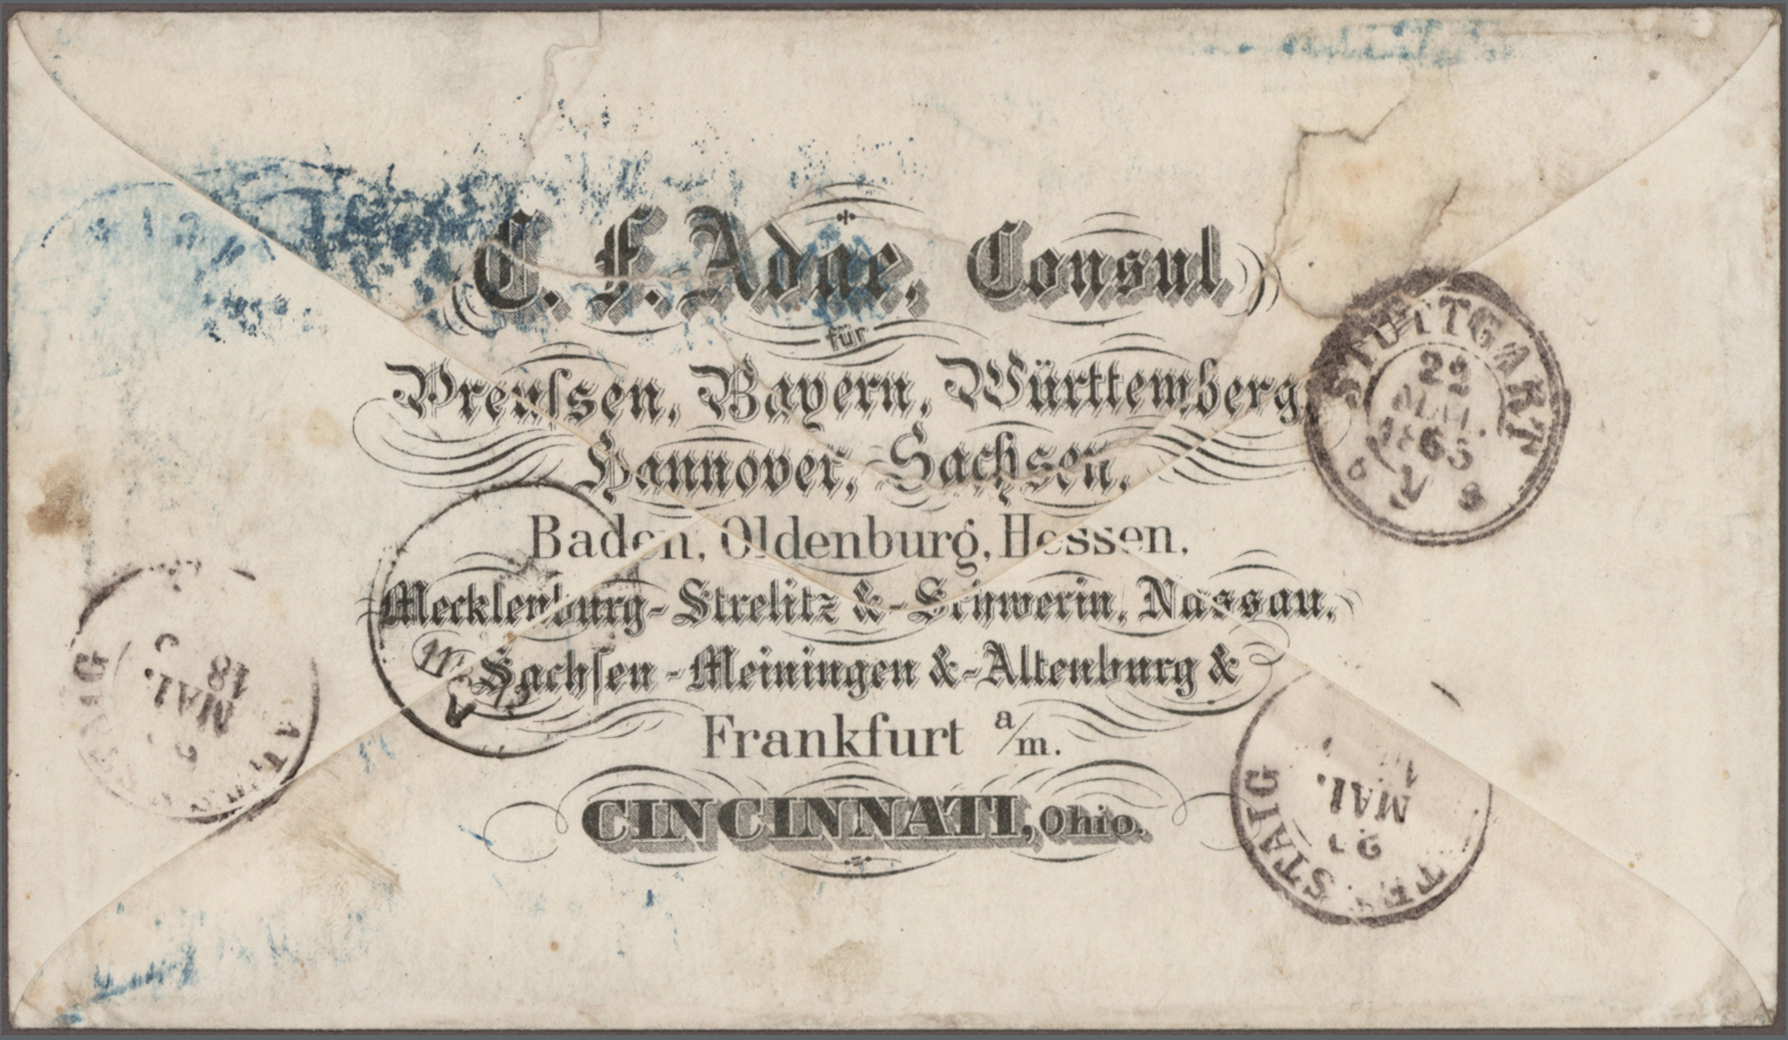 C. F. Adae, Consul
für
Preussen, Bayern, Württemberg,
Hannover, Sachsen,
Baden, Oldenburg, Hessen,
Mecklenburg-Strelitz &-Schwerin, Nassau,
Sachsen-Meiningen &-Altenburg &
Frankfurt a/m.
CINCINNATI, Ohio.
STUTTGART
22
MAI
1865
MAI.
18
STAIG
MAI.